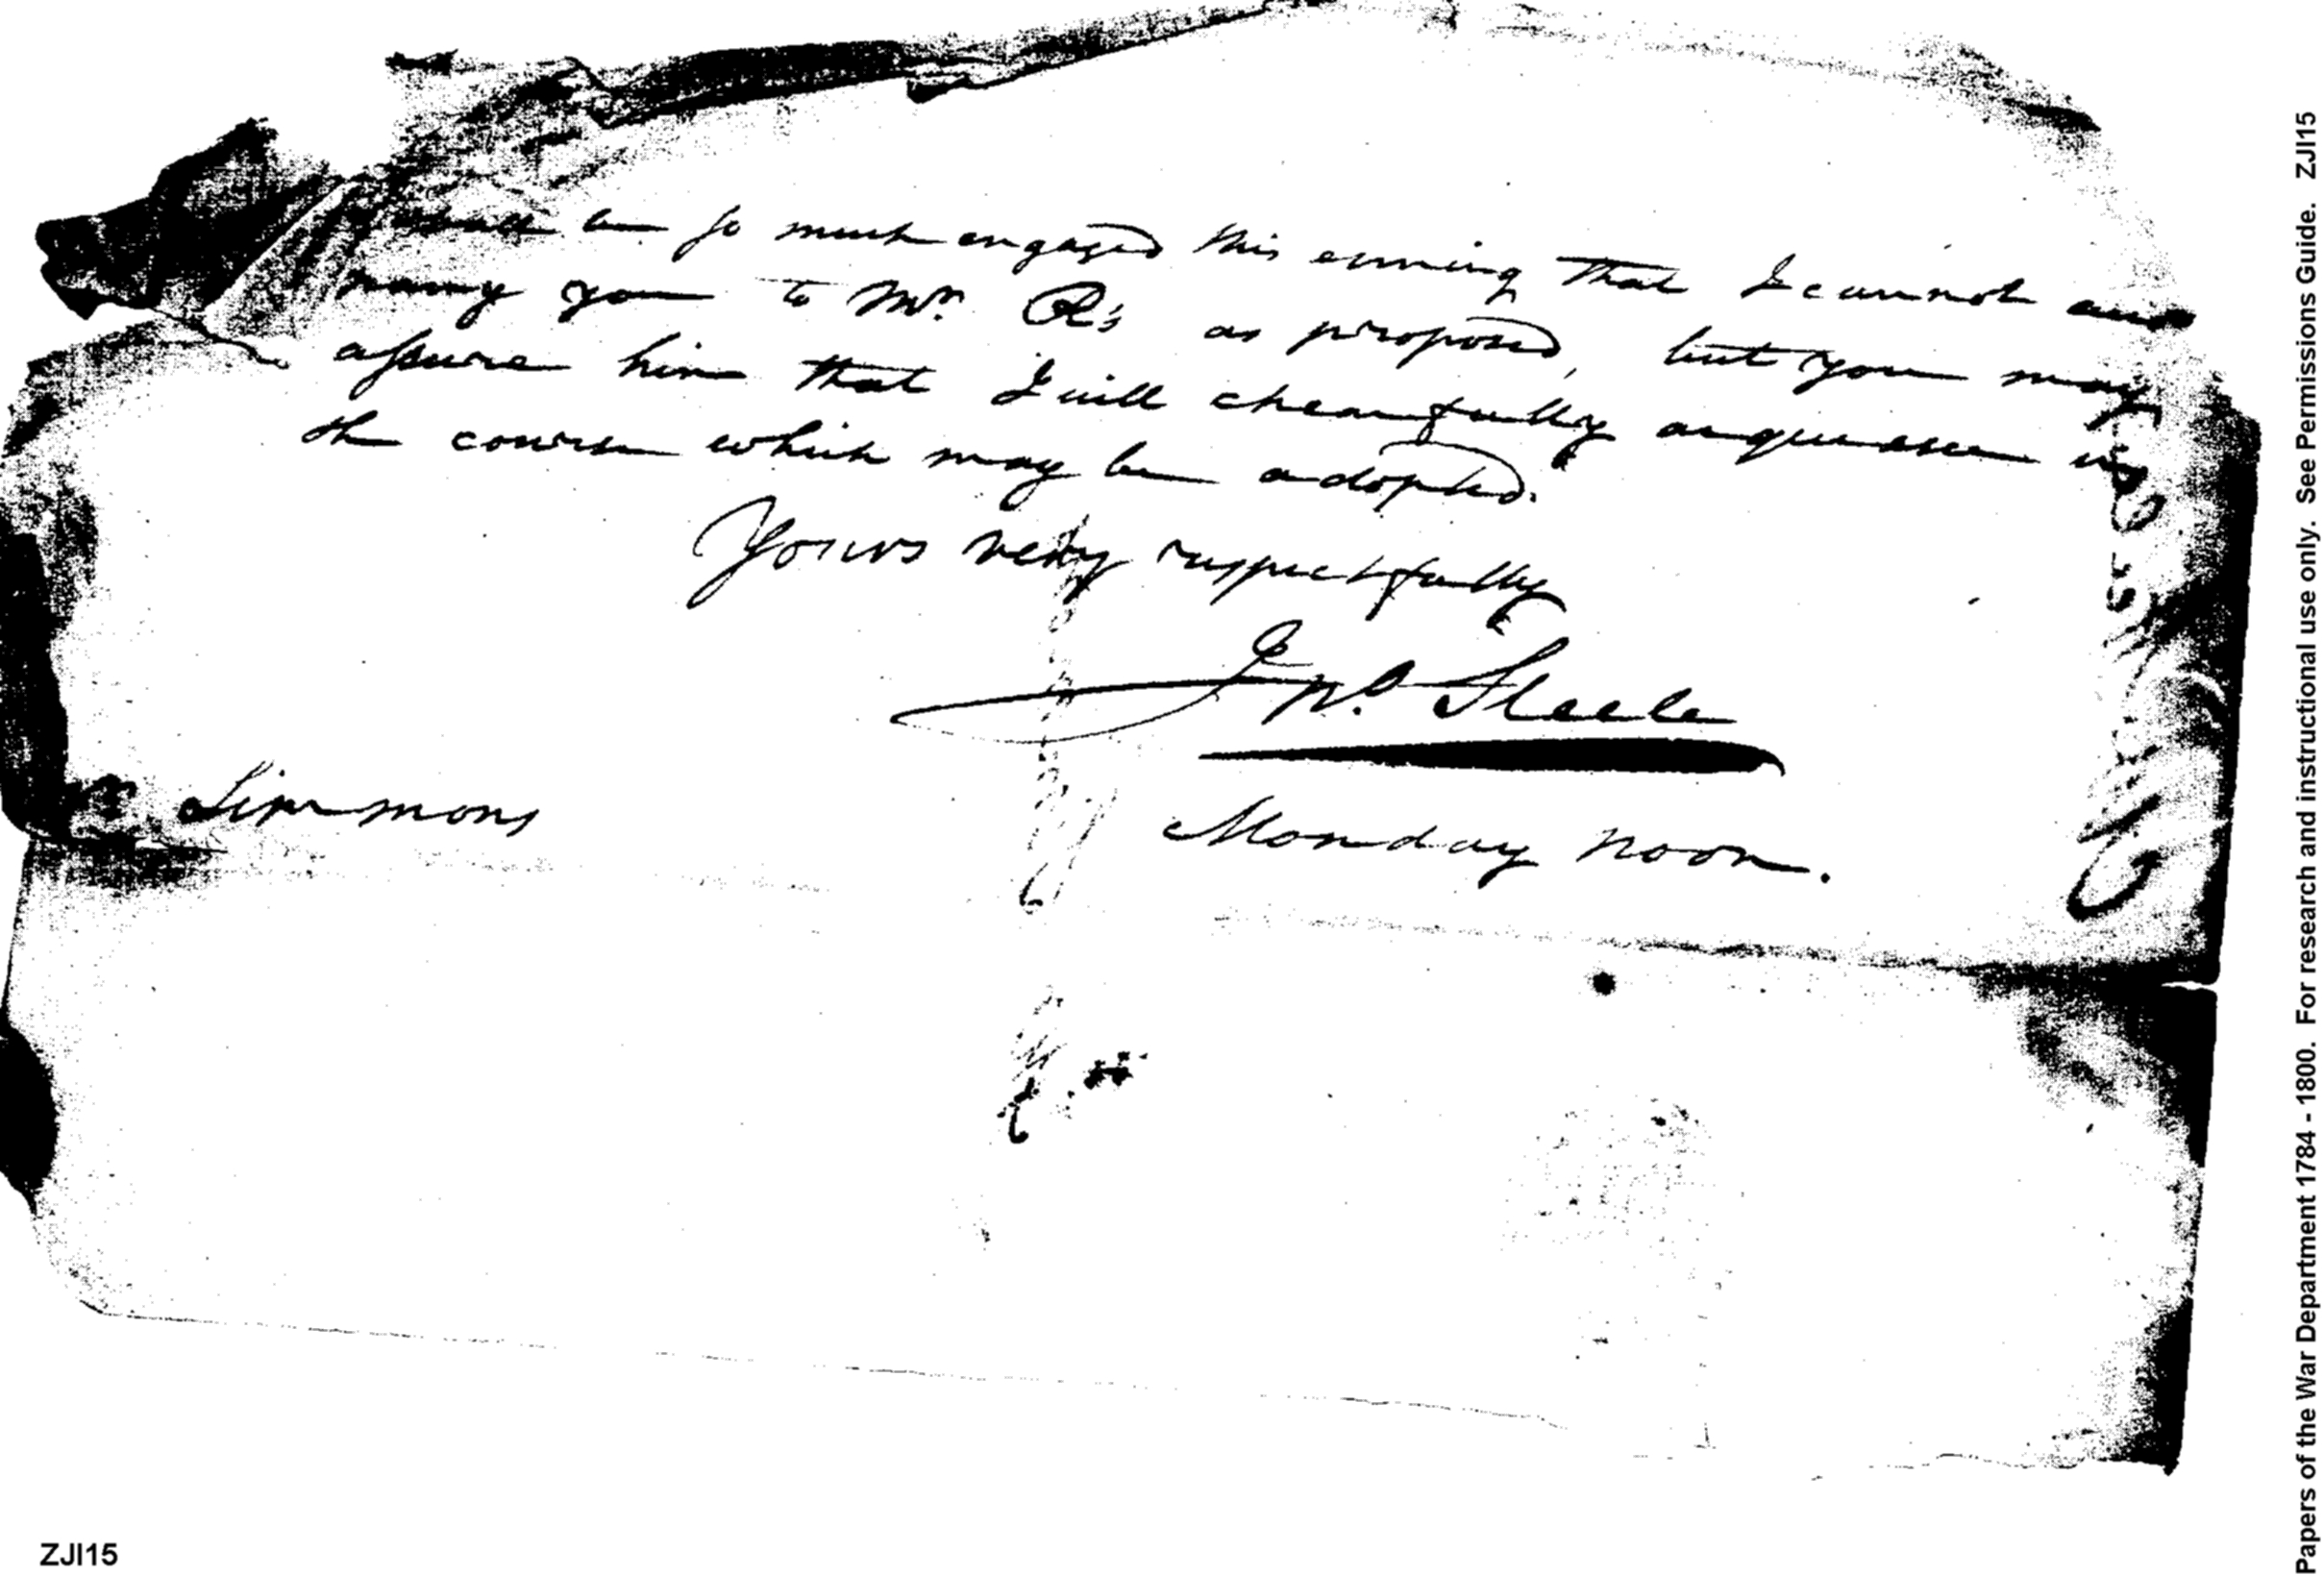 shall be so much engaged this evening that I cannot
pany you to Mr. R's as proposed, but you may
assure him that I will chearfully acquiesce in
the course which may be adopted.
Yours very respectfully
Jno. Steele
Simmons
Monday noon.
ZJI15
Papers of the War Department 1784 - 1800. For research and instructional use only. See Permissions Guide. ZJI15